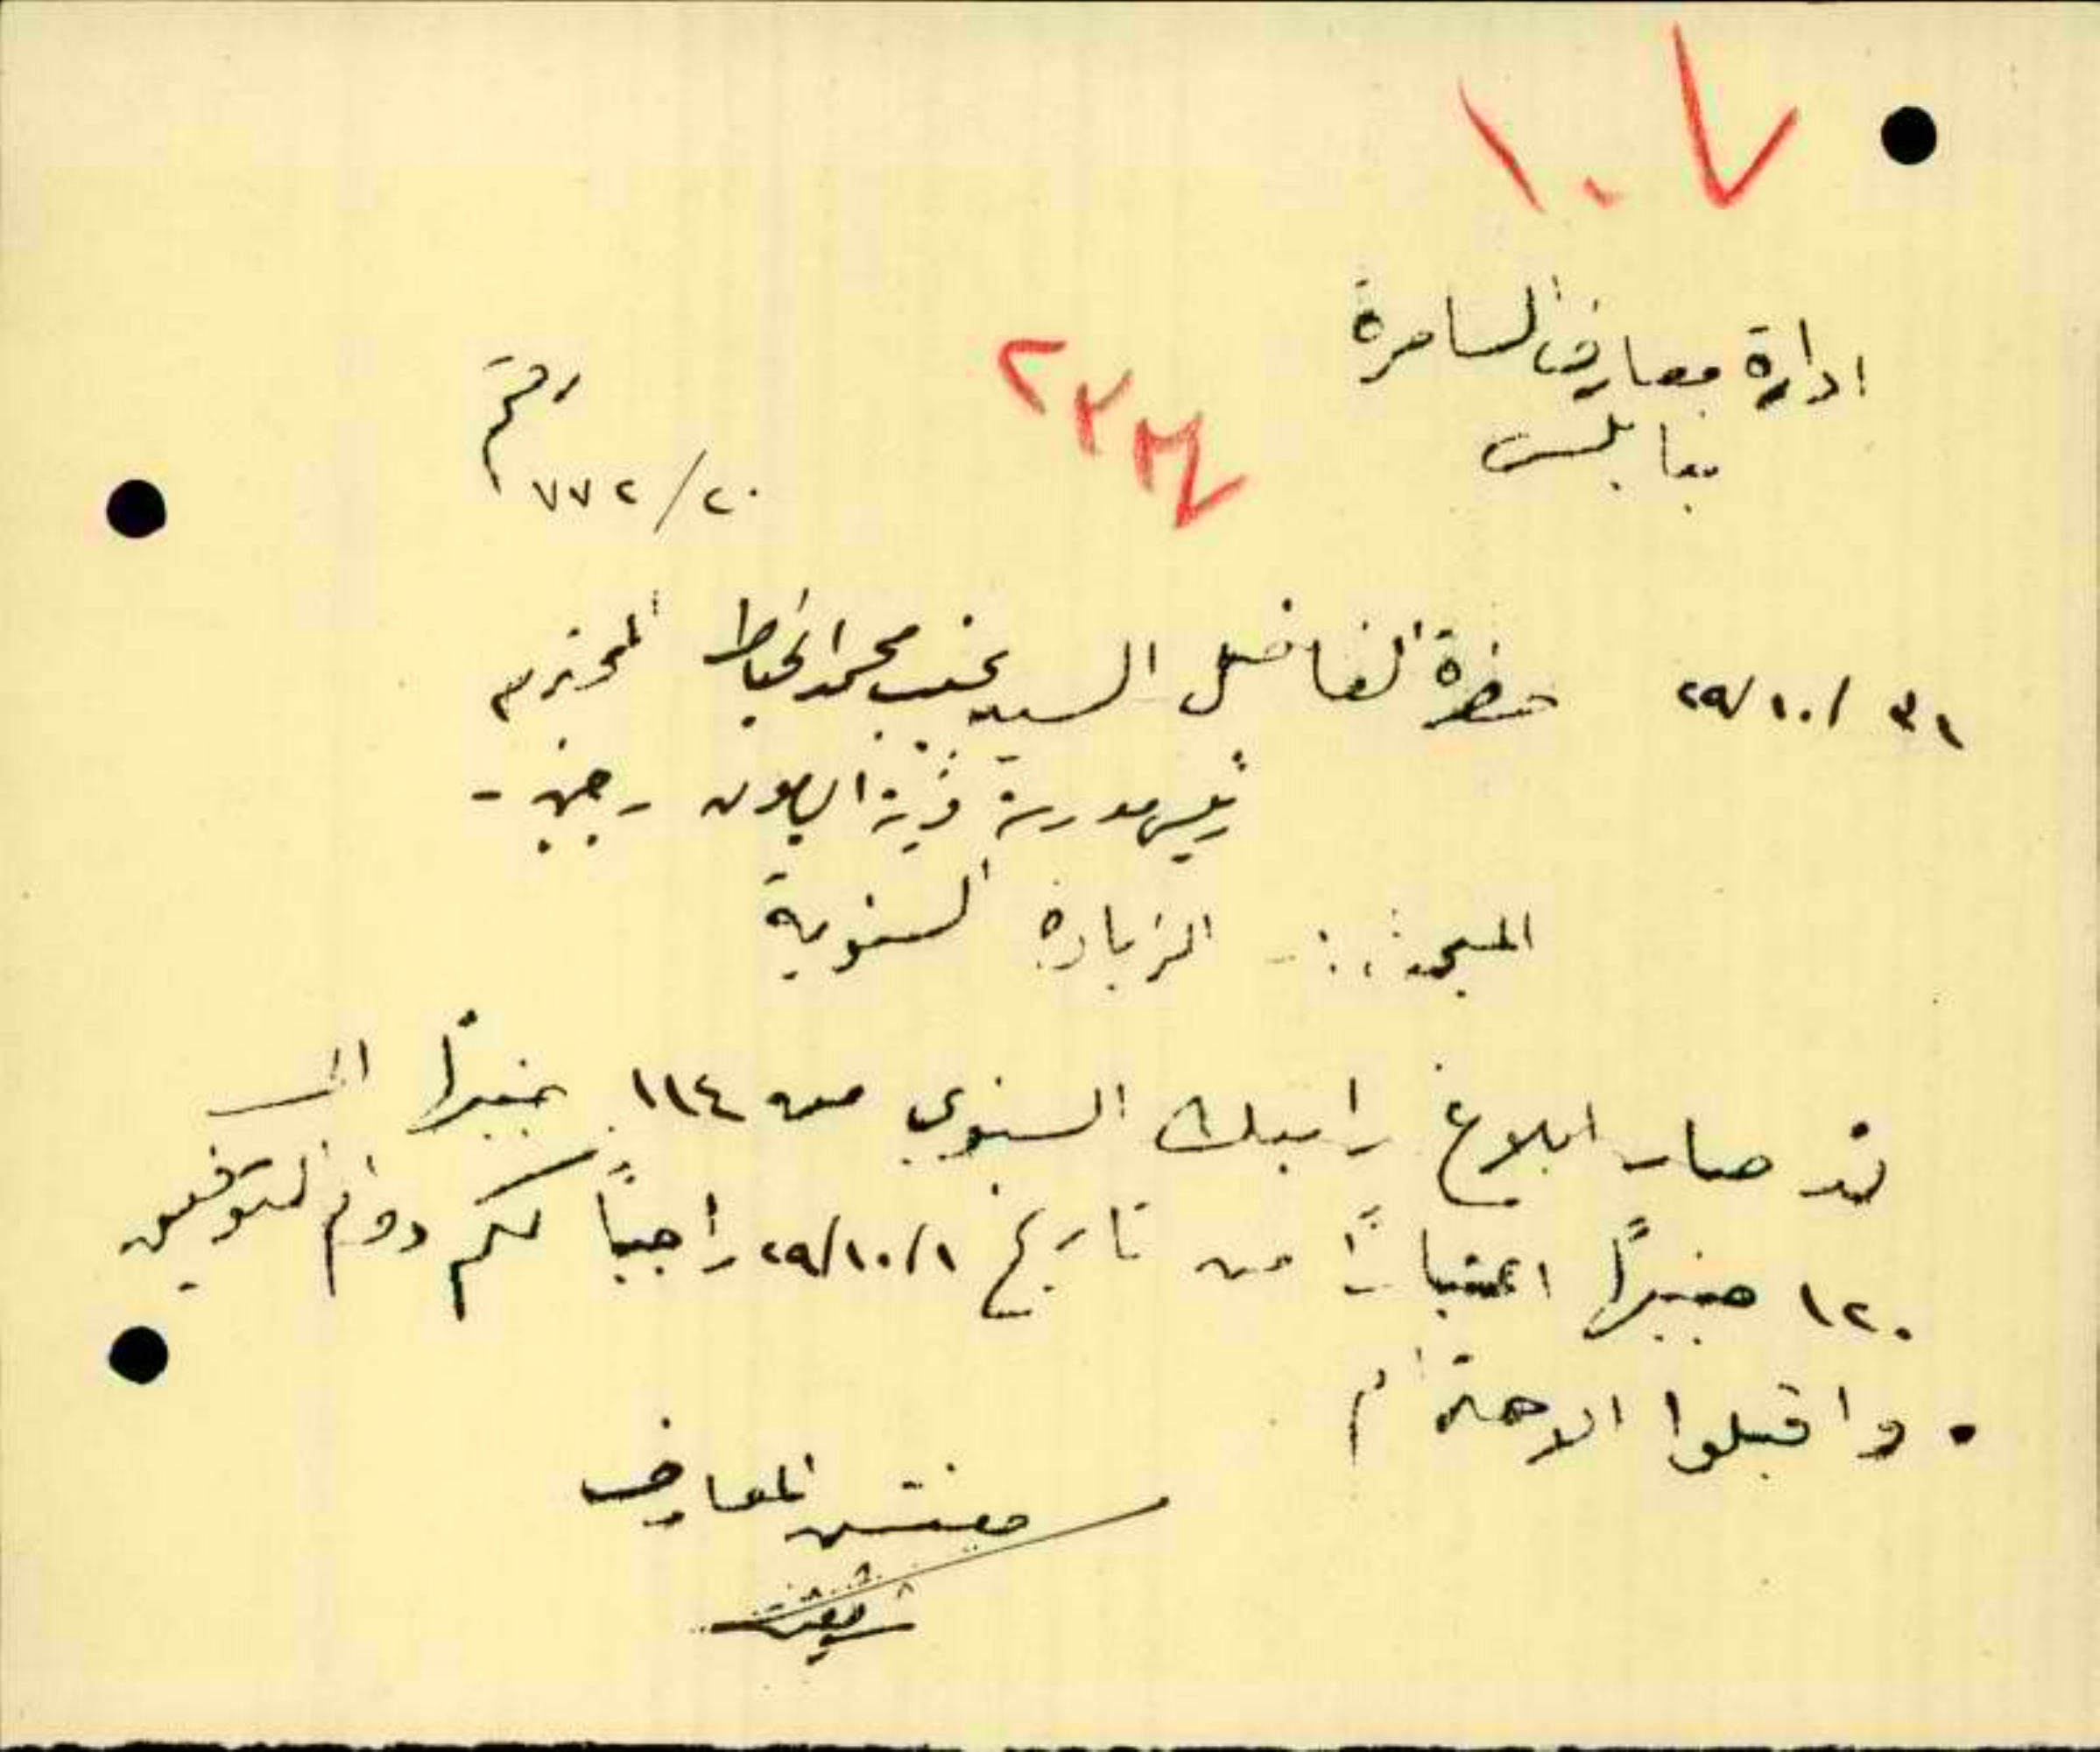 ١٠٧
ادارة معارف السامرة
بنابلس
٢٢٣٤
رقم
٧٧٢/٢٠
٣١/١٠/٢٩ حضرة الفاضل السيد نجيب محمد الخياط المحترم
رئيس مدرسة قرية اليامون - جنين -
المبحث :- الزيادة السنوية
قد صار ابلاغ راتبك السنوي من ١١٤ جنيهًا الى
١٢٠ جنيهًا اعتبارًا من تاريخ ٢٩/١٠/١ راجيًا لكم دوام التوفيق
واقبلوا الاحترام
مفتش المعارف